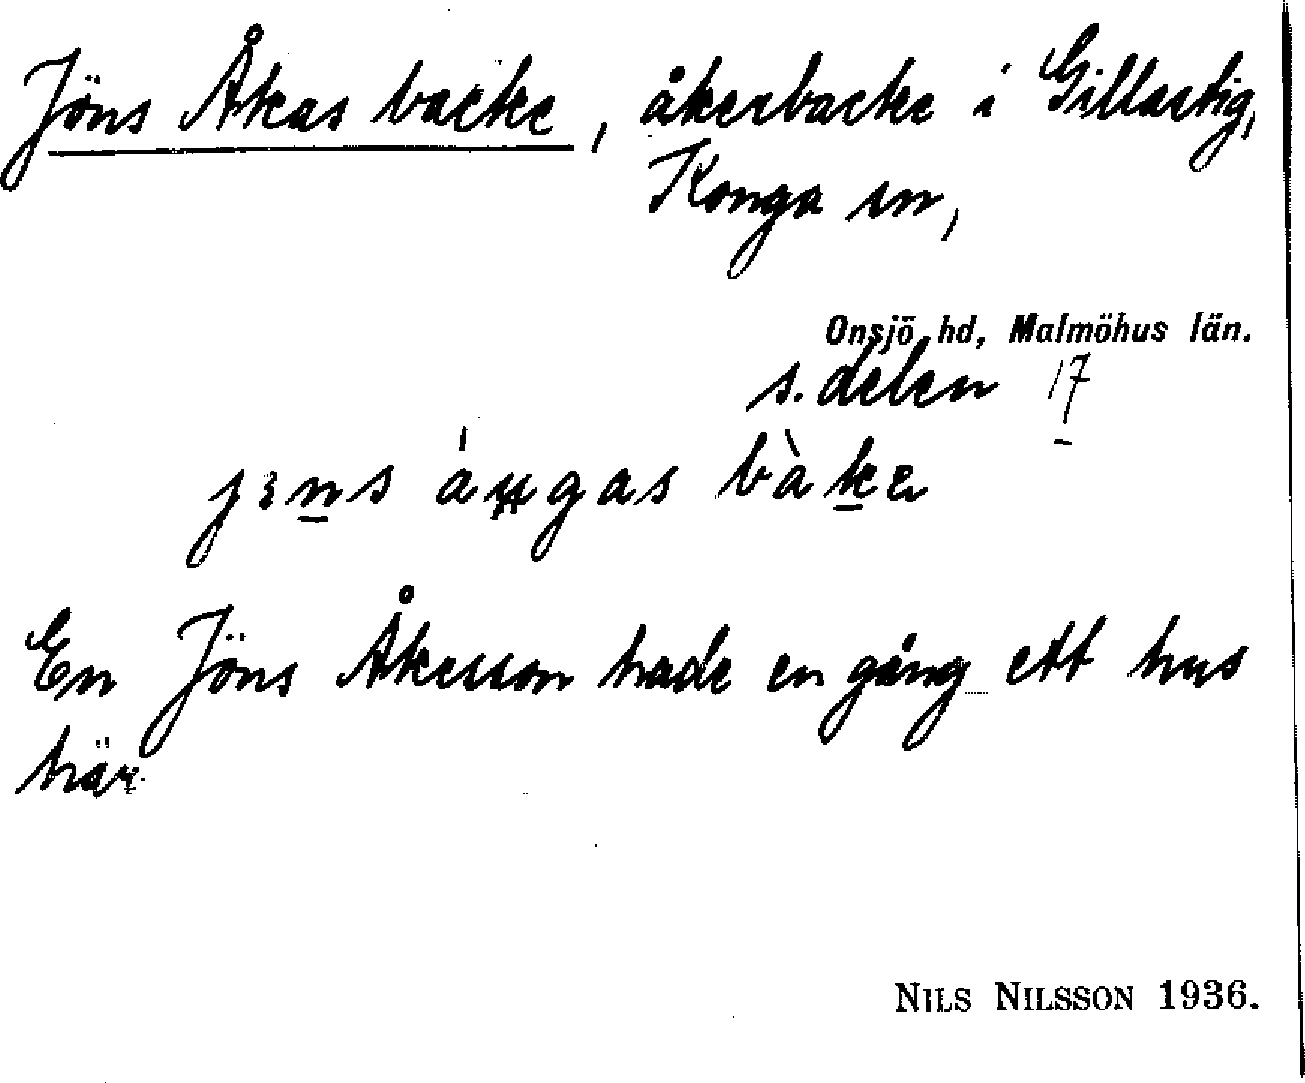 Jöns Åkas backe, åkerbacke i Gillastig,
Konga sn,
Onsjö hd, Malmöhus län.
s. delen 17
backe
En Jöns Åkesson hade en gång ett hus
här.
NILS NILSSON 1936.